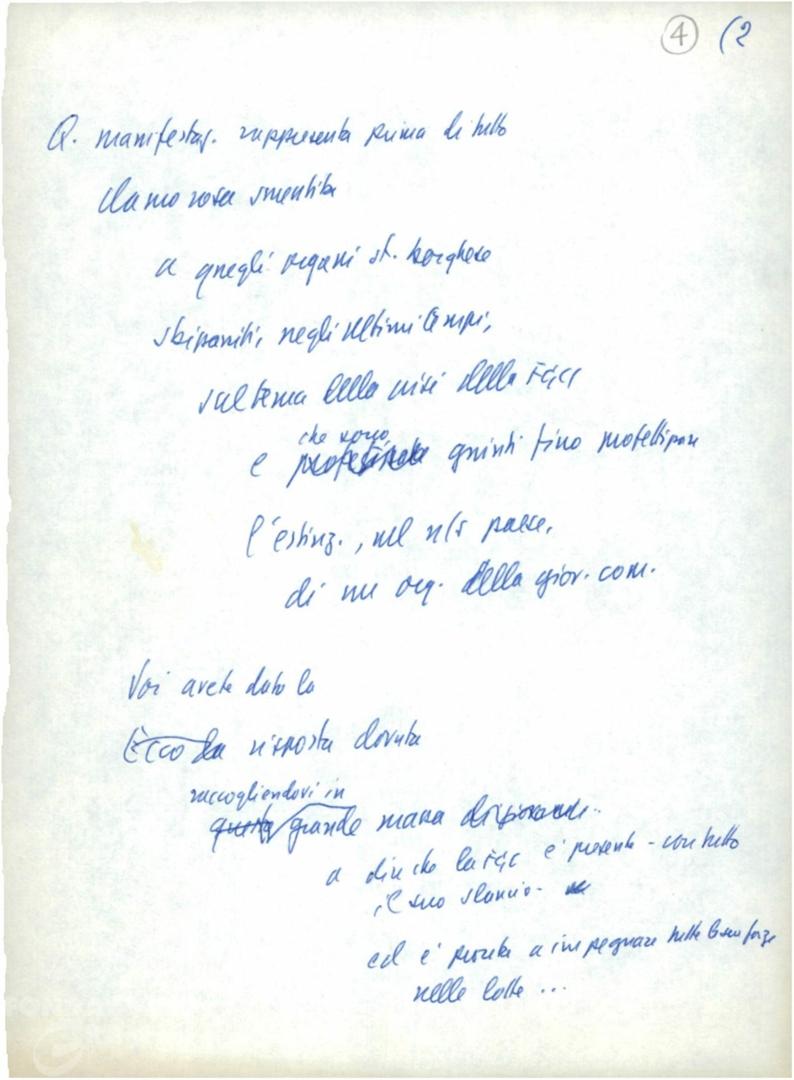 4 (2
Q. manifestaz. rappresenta prima di tutto
clamorosa smentita
a quegli organi st. borghese
sbizzarriti, negli ultimi tempi,
sul tema della crisi della FGCI
e che sono quindi fino profetizzare
l'estinz., nel n/s paese,
di un org. della giov. com.
Voi avete dato la
Ecco la risposta dovuta
raccogliendovi in
questa grande massa di giovani..
a dire che la FGC è presente - con tutto
il suo slancio -
ed è pronta a impegnare tutte le sue forze
nelle lotte ...